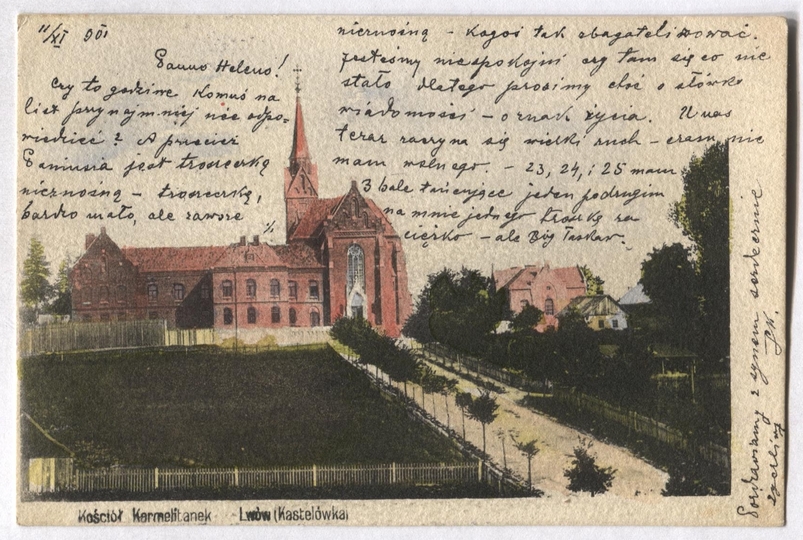 11/XI 901
Panno Heleno!
Czy to godziwe komuś na
list przynajmniej nie odpo-
wiedzieć? A przecież
Paniusia jest troszeczkę
nieznośną – troszeczkę,
bardzo mało, ale zawsze
nieznośną – kogoś tak zbagatelizować.
Jesteśmy niespokojni czy tam się co nie
stało dlatego prosimy choć o słówko
wiadomości – o znak życia. U nas
teraz zaczyna się wielki ruch – czasu nie
mam wolnego. – 23, 24, i 25 mam
3 bale tańczące jeden po drugim
na mnie jednego troszkę za
ciężko – ale Bóg łaskaw.
Pozdrawiamy z synem serdecznie
Kościół Karmelitanek Lwów (Kastelówka)